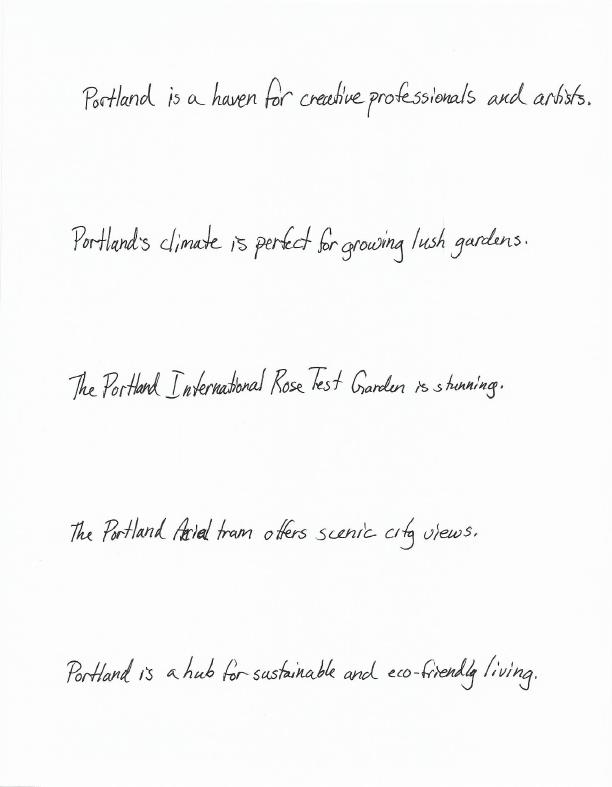 Portland is a haven for creative professionals and artists.
Portland's climate is perfect for growing lush gardens.
The Portland International Rose Test Garden is stunning.
The Portland Arial tram offers scenic city views.
Portland is a hub for sustainable and eco-friendly living.